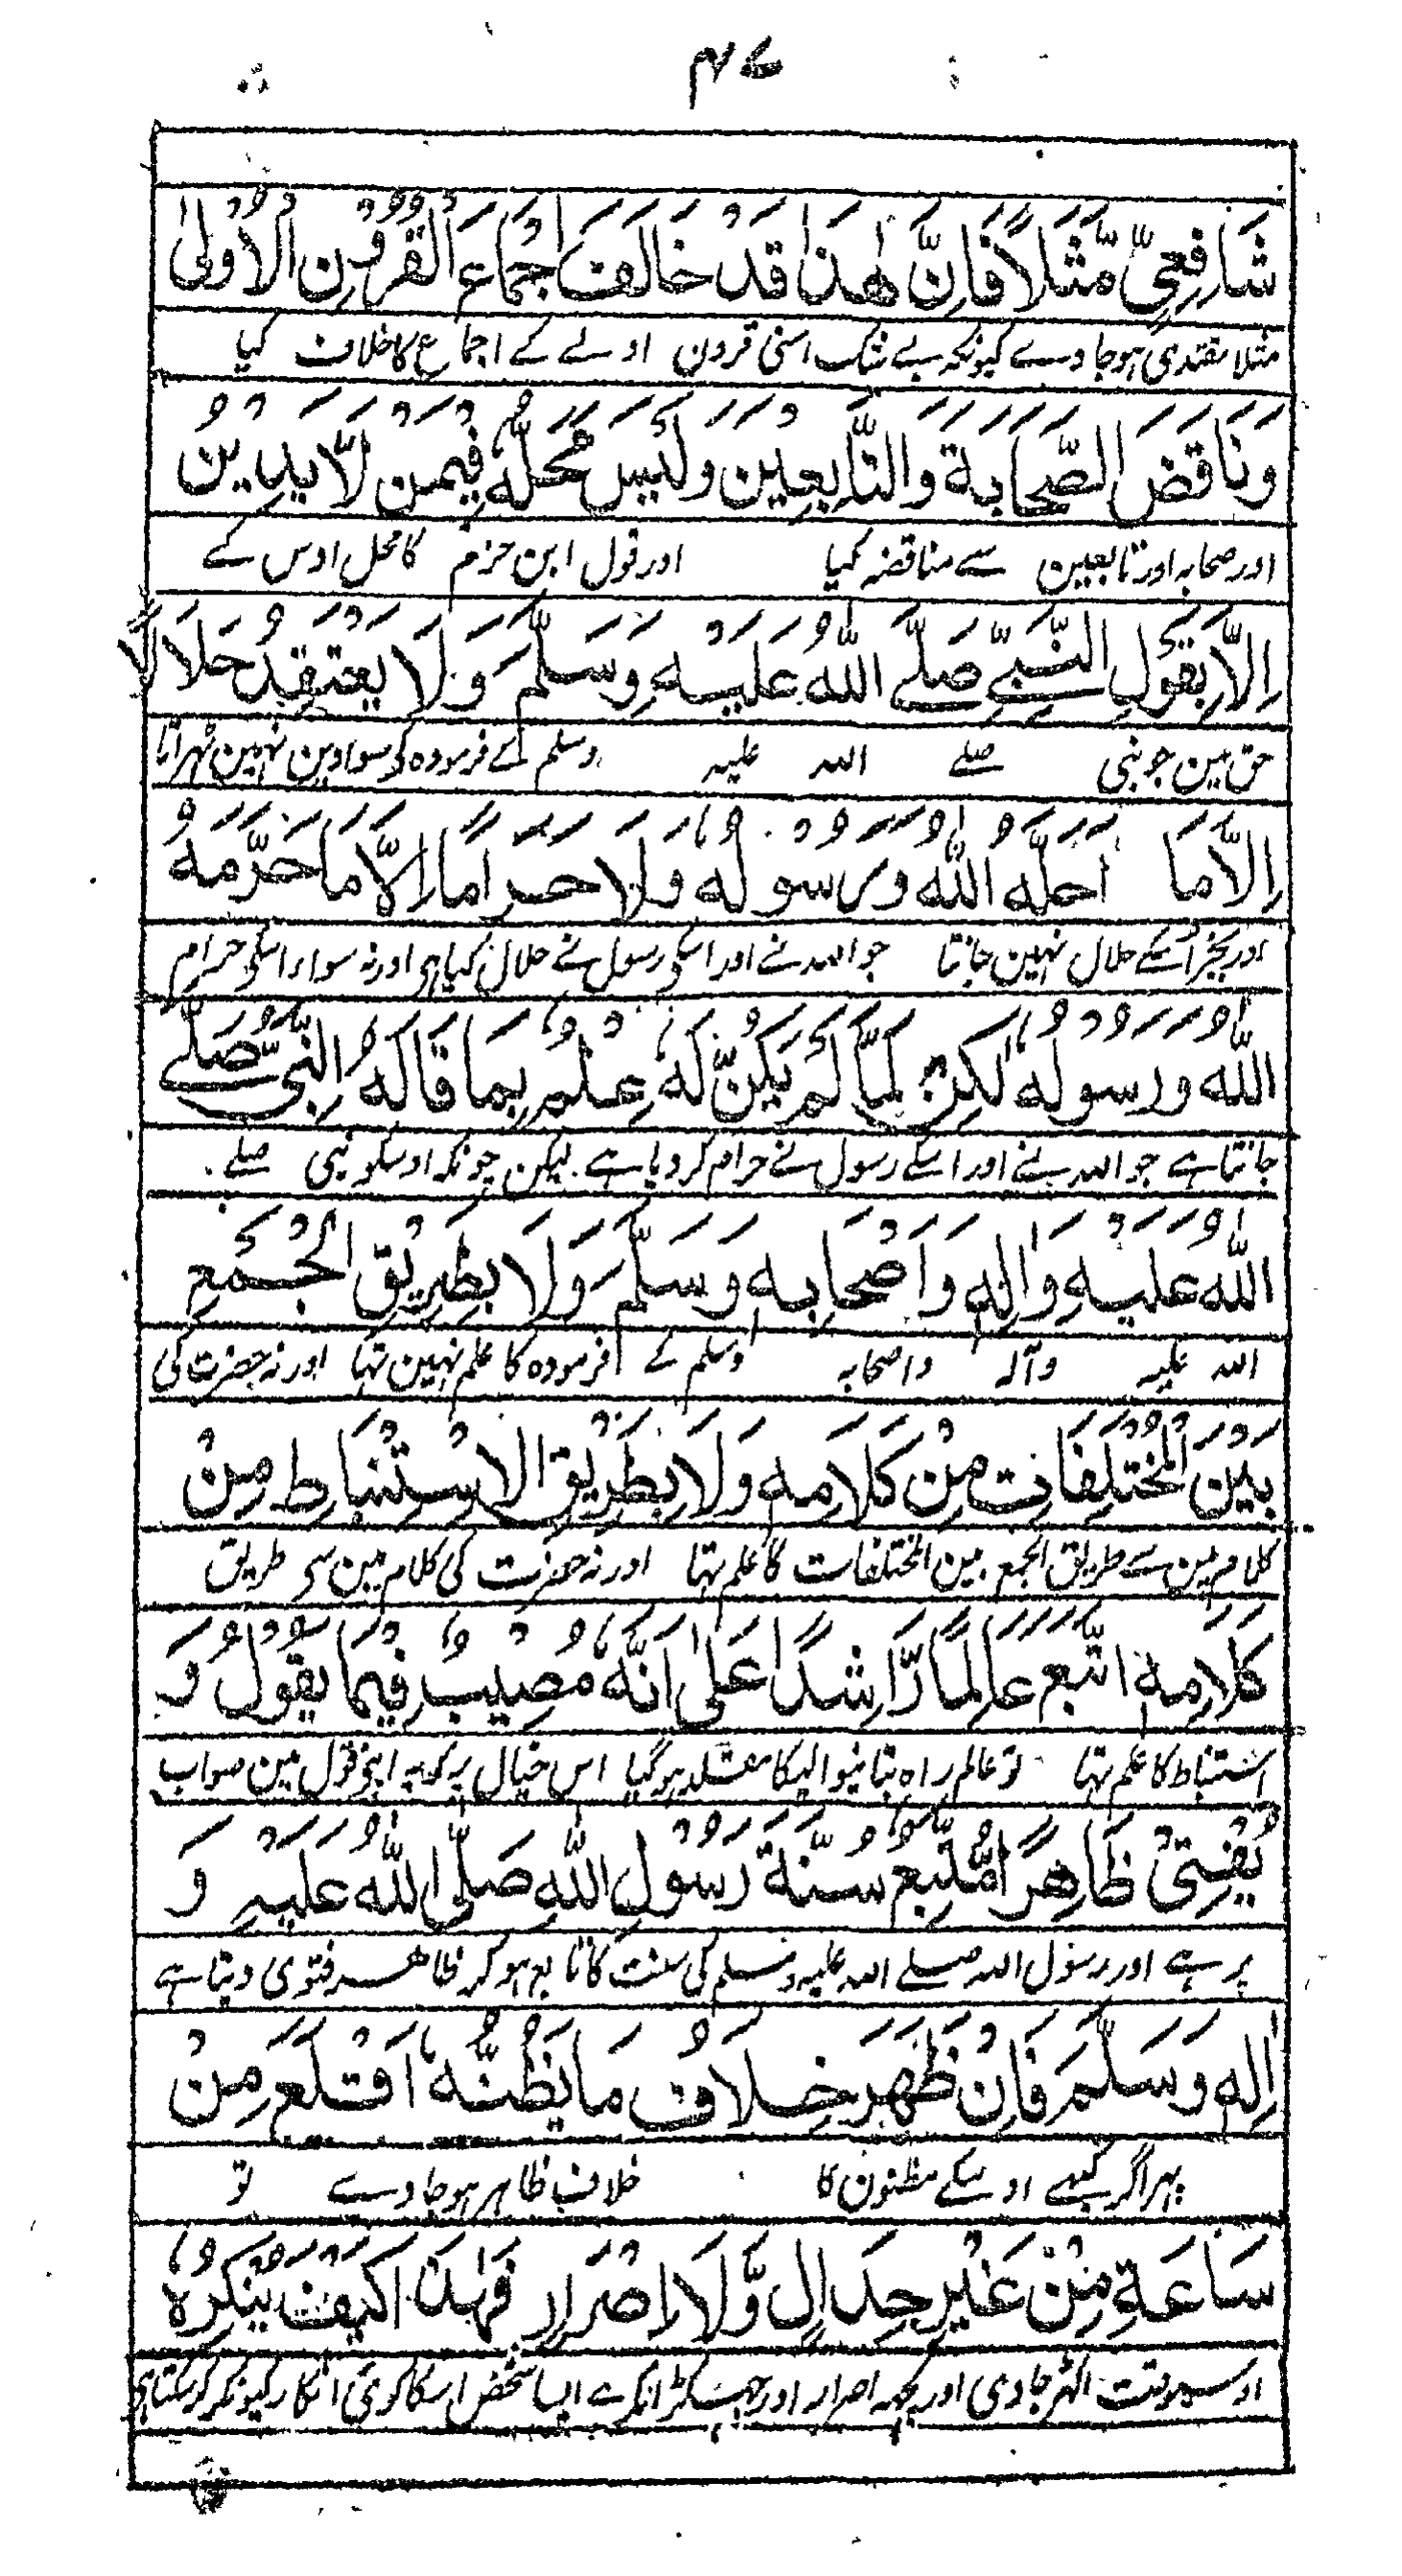 ۴۷
شَافِعِيٍّ مَّثَلًا فَاِنَّ هٰذَا قَدْ خَالَفَ اِجْمَاعَ الْقُرُوْنِ الْاُوْلٰى
مثلا مقتدی ہوجاوے کیونکہ بے شک اسنی قرون اولے کے اجماع کا خلاف کیا
وَنَاقَضَ الصَّحَابَةَ وَالتَّابِعِيْنَ وَلَيْسَ مَحَلُّهٗ فِيْمَنْ لَّا يَدِيْنُ
اور صحابہ اور تابعین سے مناقضہ کیا اور قول ابن حزم کا محل اوس کے
اِلَّا بِقَوْلِ النَّبِيِّ صَلَّے اللّٰهُ عَلَيْهِ وَسَلَّمَ وَلَا يَعْتَقِدُ حَلَالًا
حق مین جو نبی صلے اللہ علیہ وسلم کے فرمودہ کی سوا دین نہین ٹھہراتا
اِلَّا مَا اَحَلَّهُ اللّٰهُ وَرَسُوْلُهٗ وَلَا حَرَامًا اِلَّا مَا حَرَّمَهُ
اور بجز اُسکے حلال نہین جانتا جو اللہ نے اور اسکی رسول نے حلال کیا ہی اور نہ سواء اسکی حرام
اللّٰهُ وَرَسُوْلُهٗ لٰكِنْ لَمَّا لَمْ يَكُنْ لَّهٗ عِلْمٌ بِمَا قَالَهُ النَّبِيُّ صَلَّے
جانتا ہے جو اللہ نے اور اسکے رسول نے حرام کر دیا ہے لیکن چونکہ اوسکو نبی صلے
اللّٰهُ عَلَيْهِ وَاٰلِهٖ وَاَصْحَابِهٖ وَسَلَّمَ وَلَا بِطَرِيْقِ الْجَمْعِ
اللہ علیہ وآلہ واصحابہ وسلم کے فرمودہ کا علم نہین تہا اور نہ حضرت کی
بَيْنَ الْمُخْتَلِفَاتِ مِنْ كَلَامِهٖ وَلَا بِطَرِيْقِ الْاِسْتِنْبَاطِ مِنْ
کلام مین سے طریق الجمع بین المختلفات کا علم تہا اور نہ حضرت کی کلام مین سی طریق
كَلَامِهٖ اتَّبَعَ عَالِمًا رَّاشِدًا عَلٰى اَنَّهٗ مُصِيْبٌ فِيْمَا يَقُوْلُ وَ
استنباط کا علم تہا تو عالم راہ بتانیوالیکا مقلد ہوگیا اس خیال پر کہ یہ اپنی قول مین صواب
يُفْتِيْ ظَاهِرًا مُّتَّبِعٌ سُنَّةَ رَسُوْلِ اللّٰهِ صَلَّى اللّٰهُ عَلَيْهِ وَ
پر ہے اور رسول اللہ صلے اللہ علیہ وسلم کی سنت کا تابع ہو کر ظاہر فتوی دیتا ہے
اٰلِهٖ وَسَلَّمَ فَاِنْ ظَهَرَ خِلَافُ مَا يَظُنُّهٗ اَقْلَعَ مِنْ
پہر اگر کہے اوسکے مظنون کا خلاف ظاہر ہوجاوے تو
سَاعَةٍ مِنْ غَيْرِ جِدَالٍ وَّلَا اِصْرَارٍ فَهٰذَا كَيْفَ يُنْكِرُهٗ
اوسیوقت اکھڑ جاوی اور کچھ اصرار اور جھگڑا نکرے ایسا شخص اسکا کوئی انکار کیونکر کرسکتا ہی